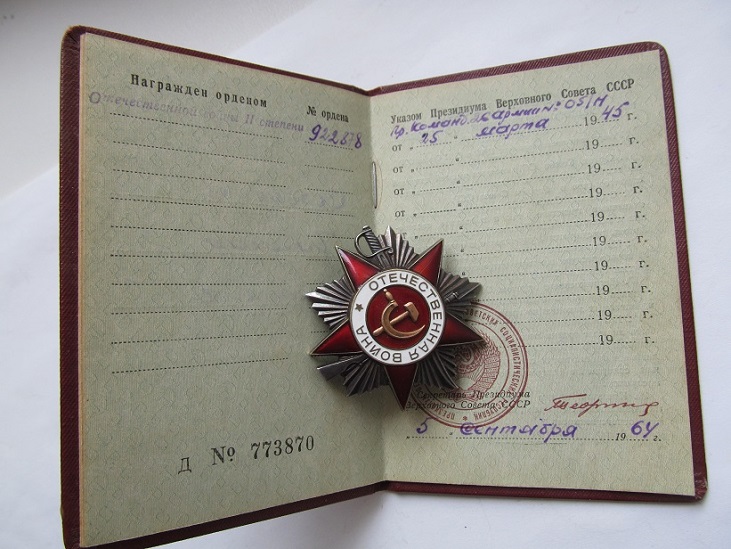 Награжден орденом
№ ордена
Отечественной войны II степени 922878
Д № 773870
Указом Президиума Верховного Совета СССР
Пр. Команд. армии № 051/Н
от „ 25 „ марта 19 45 г.
от „ „ 19 г.
от „ „ 19 г.
от „ „ 19 г.
„ 19 г.
19 г.
19 г.
19 г.
19 г.
19 г.
ОТЕЧЕСТВЕННАЯ ВОЙНА
Секретарь Президиума
Верховного Совета СССР
„ 5 „ сентября 19 64 г.